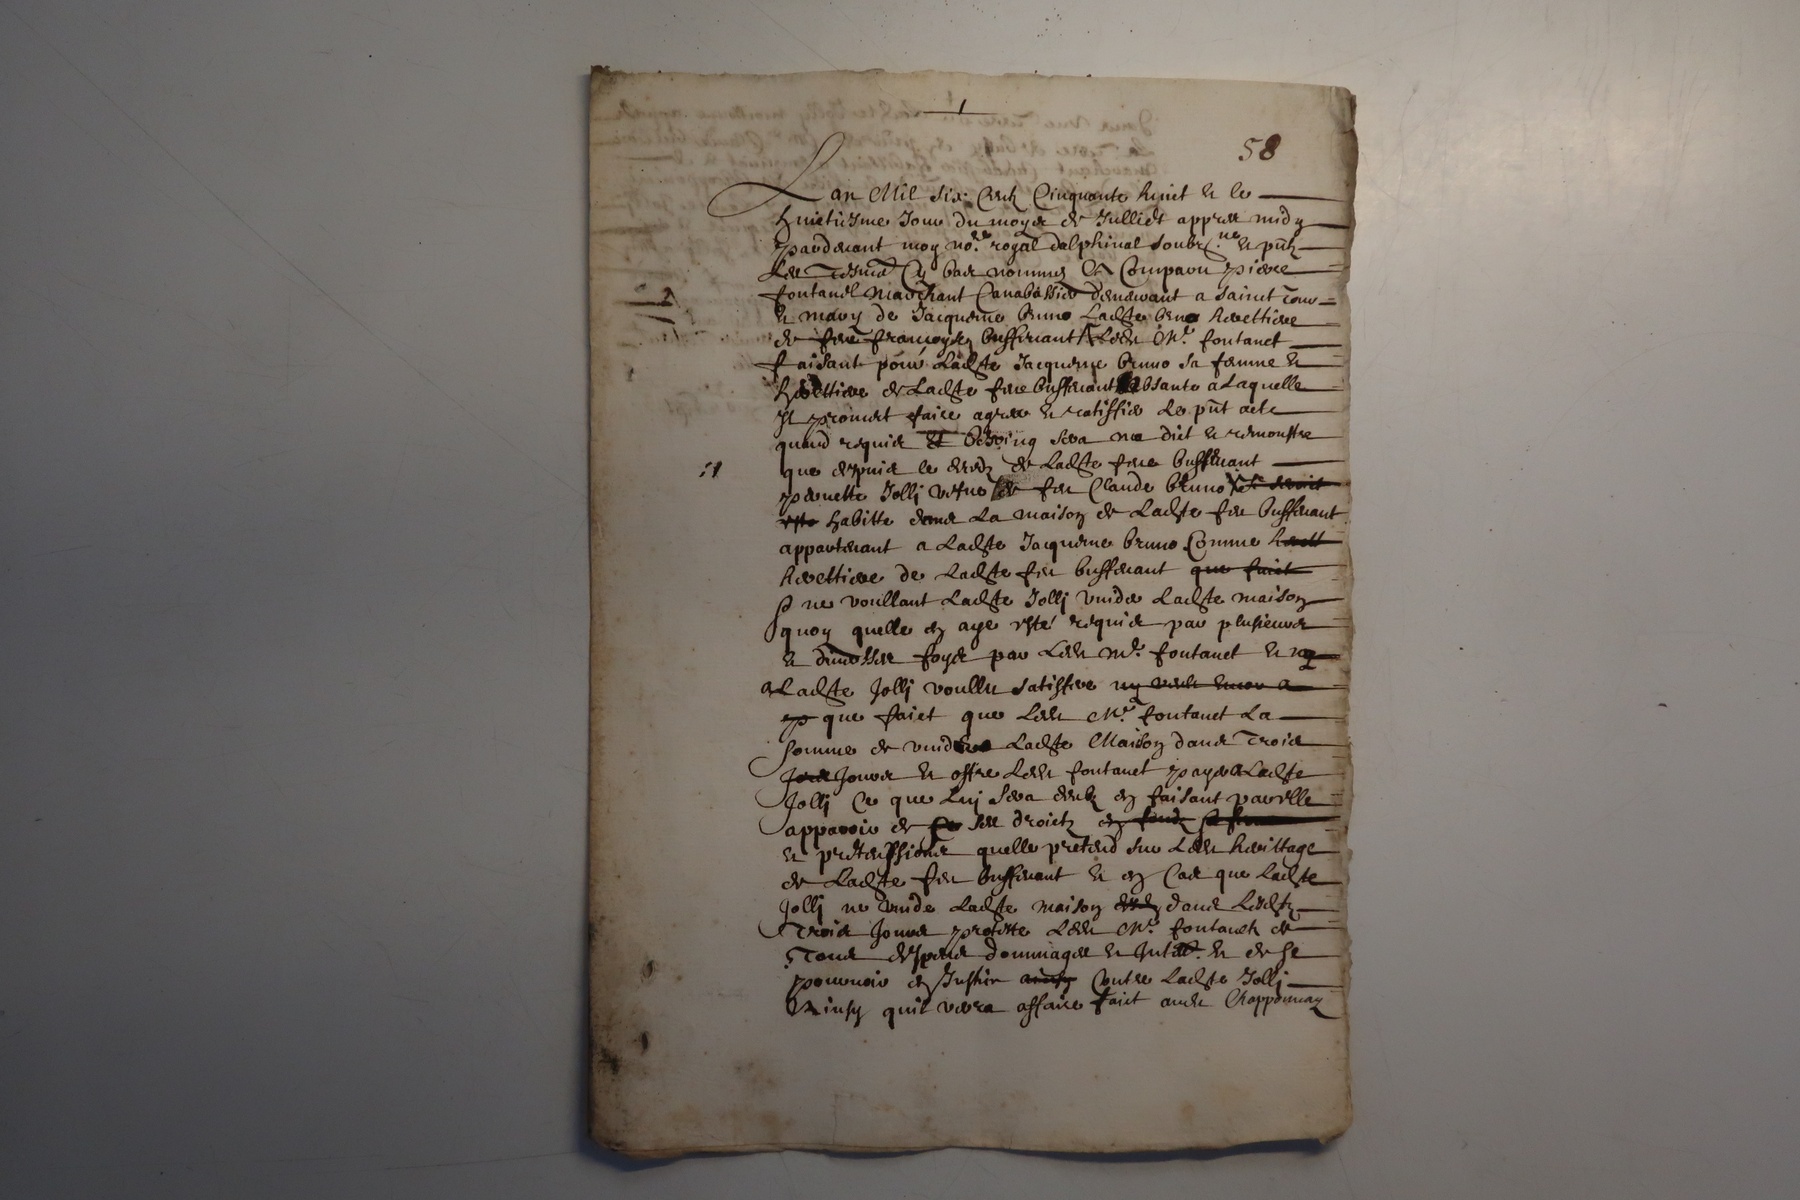 1
58
Lan Mil six Centz Cinquante huict & le
huictiesme Jour du moys de Julliet appres midy
pardevant moy no.re royal dalphinal soubz.ne & pntz
Les Tesmoins Cy bas nommes Est Comparu pierre
fontanel Marchant Canabassier demeurant a sainct
& mary de Jacqueme bruno Ladite bruno herettiere
de feue francoyse buffevant Ledit Mr. fontanet
faisant pour Ladite Jacqueme bruno sa femme &
herettiere de Ladite feue buffevant absante a Laquelle
Il promet faire agreer & ratiffier Le pnt acte
quand requis & besoing sera ma dict & remonstre
que despuis le deces de Ladite feue buffevant
51
pernette Jolli vefve de feu Claude bruno
habitte dans La maison de Ladite feu buffevant
appartenant a Ladite Jacqueme bruno Comme herett
herettiere de Ladite feu buffevant que faict
& ne voullant Ladite Jolli vuider Ladite maison
quoy quelle en aye esté requise par plusieurs
& diverses foys par Ledit Mr. fontanet & ny
a Ladite Jolli voullu satisfere
que faict que Ledit Mr. fontanet La
somme de vuider Ladite Maison dans Trois
Jours & offre Ledit fontanet payer a Ladite
Jolli Ce que Luj sera deubz en faisant par elle
apparoir de ses droictz
& prétenssions quelle pretend sur Ledit herittage
de Ladite feu buffevant & en Cas que Ladite
Jolli ne vuide Ladite maison dans Lesditz
Trois Jours proteste Ledit Mr. fontanet de
Tous despens dommages & Intetz. & de se
pourvoir en Justice Contre Ladite Jolli
Ainsy quil verra affaire faict audit Chapponnay